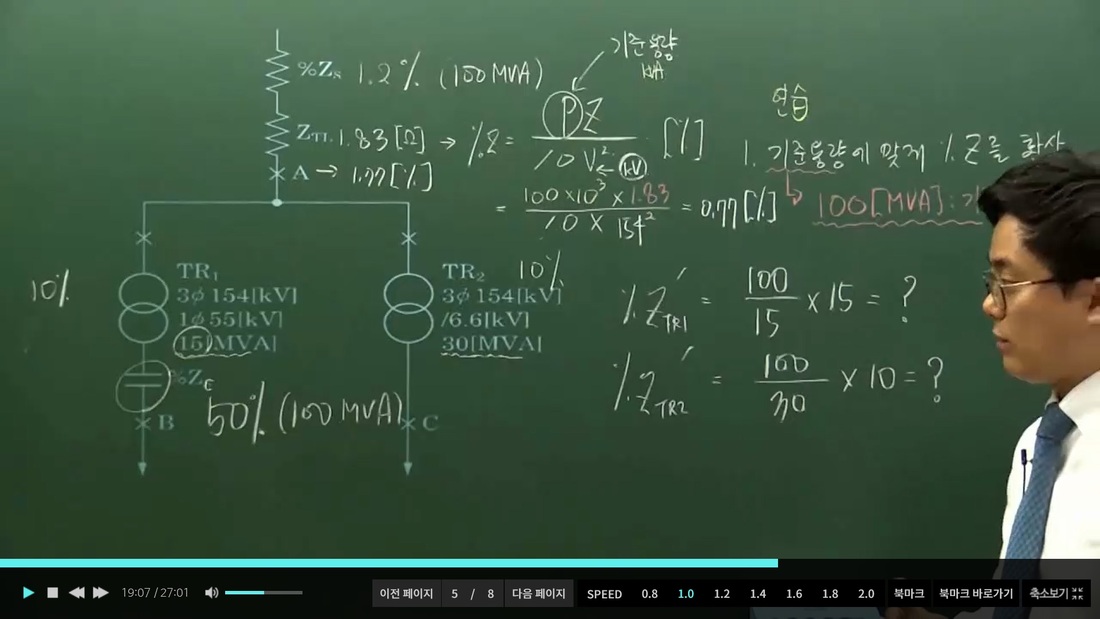 기준용량
kVA
%Zs 1.2% (100MVA)
연습
ZTL 1.83[Ω] → %Z = PZ / 10V² [%]
kV
1. 기준용량에 맞게 %Z를 환사
A → 1.97[%]
= 100×10³×1.83 / 10×154² = 0.77[%]
100[MVA]:
10%
TR₁
3φ 154[kV]
1φ 55[kV]
15[MVA]
TR₂ 10%
3φ 154[kV]
/6.6[kV]
30[MVA]
%Z'TR1 = 100/15 × 15 = ?
%Z'TR2 = 100/30 × 10 = ?
%Zc
50% (100MVA)
B
C
19:07 / 27:01
이전 페이지 5 / 8 다음 페이지
SPEED 0.8 1.0 1.2 1.4 1.6 1.8 2.0
북마크 북마크 바로가기 축소보기